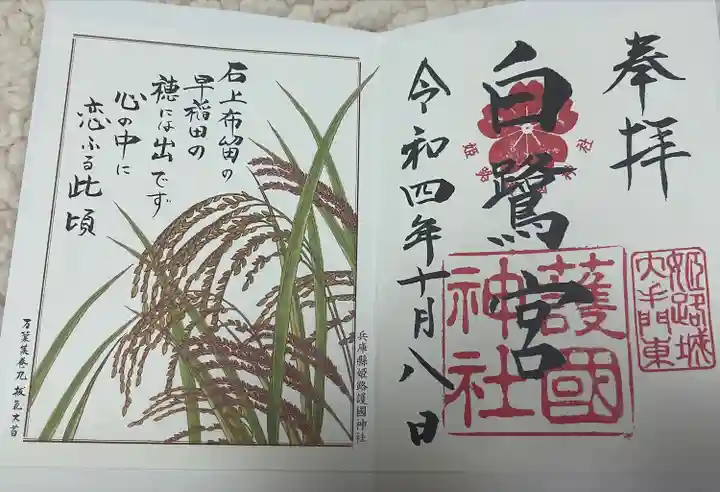 奉拝
白鷺宮
令和四年十月八日
護國
神社
姫路城
大手門東
石上布留の
早稲田の
穂には出でず
心の中に
恋ふる此頃
兵庫縣姫路護國神社
万葉集巻九 抜気大首